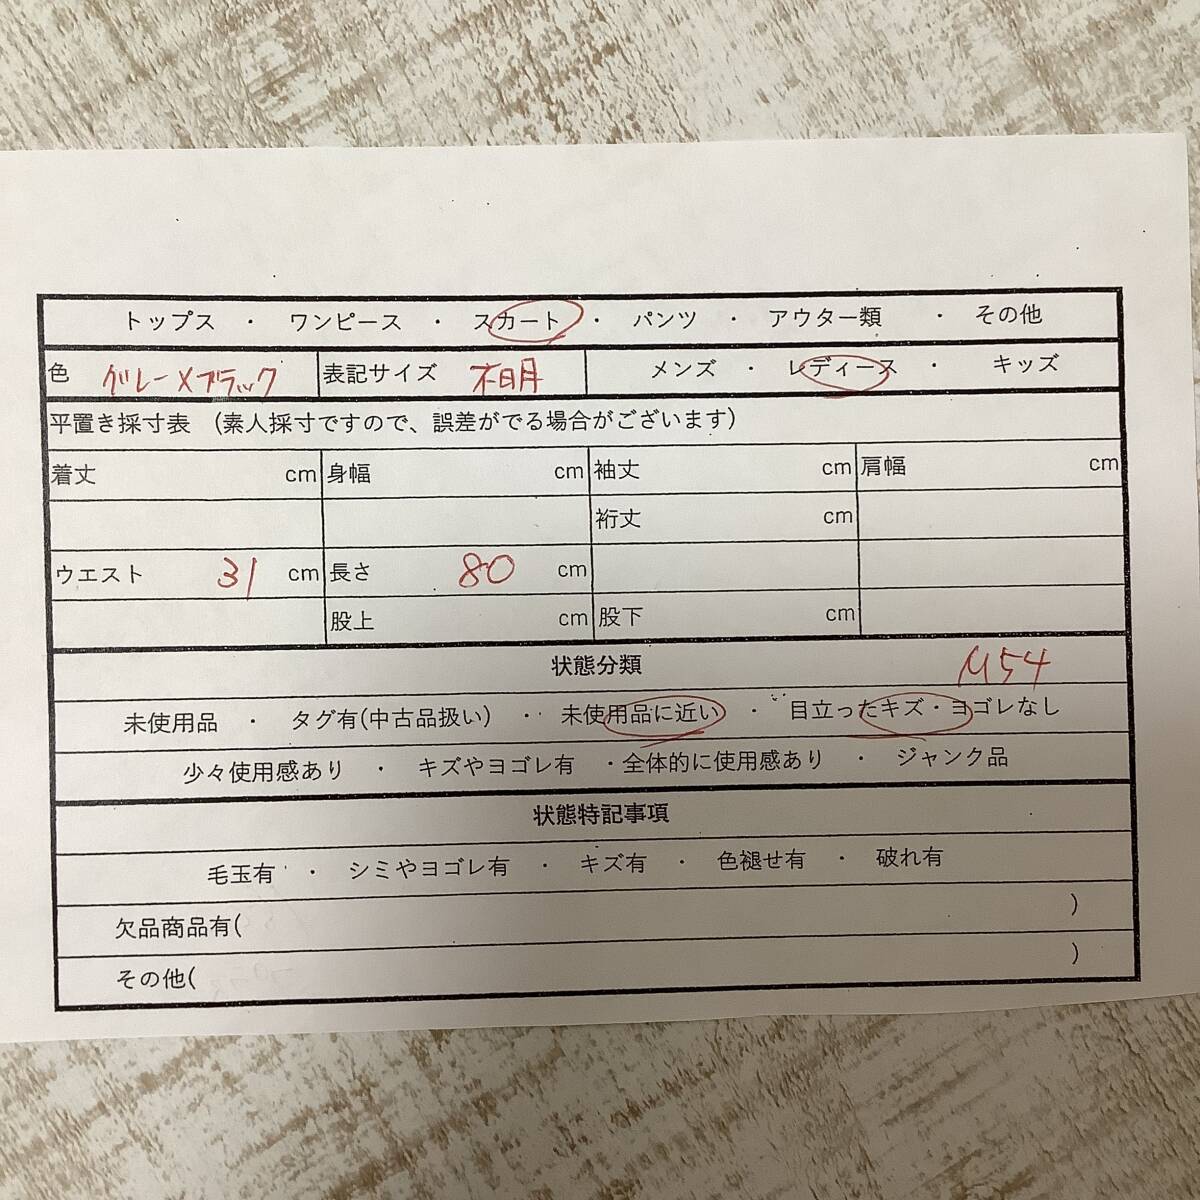 トップス ・ ワンピース ・ スカート ・ パンツ ・ アウター類 ・ その他
色 グレー×ブラック 表記サイズ 不明 メンズ ・ レディース ・ キッズ
平置き採寸表 (素人採寸ですので、誤差がでる場合がございます)
着丈 cm 身幅 cm 袖丈 cm 肩幅 cm
裄丈 cm
ウエスト 31 cm 長さ 80 cm
股上 cm 股下 cm
状態分類 M54
未使用品 ・ タグ有(中古品扱い) ・ 未使用品に近い ・ 目立ったキズ・ヨゴレなし
少々使用感あり ・ キズやヨゴレ有 ・全体的に使用感あり ・ ジャンク品
状態特記事項
毛玉有 ・ シミやヨゴレ有 ・ キズ有 ・ 色褪せ有 ・ 破れ有
欠品商品有( )
その他( )